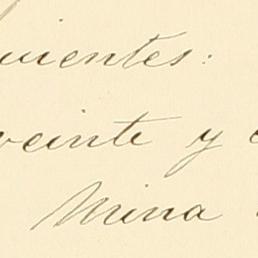 uientes:
veinte y c
Mina